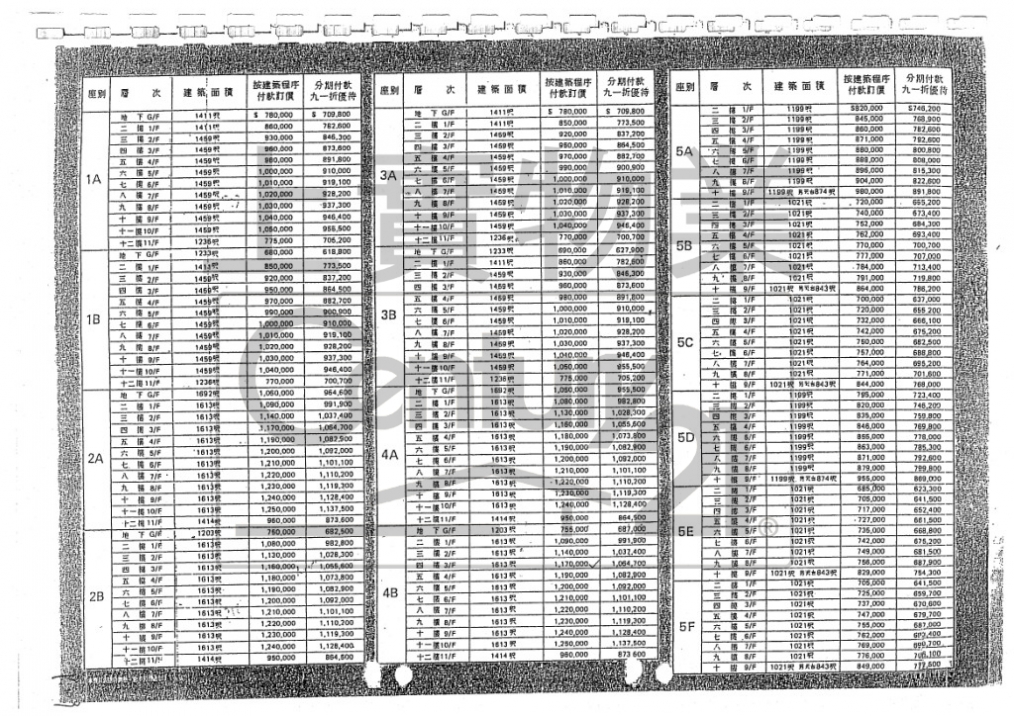 座別 層 次 建築面積 按建築程序付款訂價 分期付款九一折優待
1A
地下 G/F 1411呎 $ 780,000 $ 709,800
二樓 1/F 1411呎 860,000 782,600
三樓 2/F 1459呎 930,000 846,300
四樓 3/F 1459呎 960,000 873,600
五樓 4/F 1459呎 980,000 891,800
六樓 5/F 1459呎 1,000,000 910,000
七樓 6/F 1459呎 1,010,000 919,100
八樓 7/F 1459呎 1,020,000 928,200
九樓 8/F 1459呎 1,030,000 937,300
十樓 9/F 1459呎 1,040,000 946,400
十一樓 10/F 1459呎 1,050,000 955,500
十二樓 11/F 1236呎 775,000 705,200
1B
地下 G/F 1233呎 680,000 618,800
二樓 1/F 1411呎 850,000 773,500
三樓 2/F 1459呎 920,000 837,200
四樓 3/F 1459呎 950,000 864,500
五樓 4/F 1459呎 970,000 882,700
六樓 5/F 1459呎 990,000 900,900
七樓 6/F 1459呎 1,000,000 910,000
八樓 7/F 1459呎 1,010,000 919,100
九樓 8/F 1459呎 1,020,000 928,200
十樓 9/F 1459呎 1,030,000 937,300
十一樓 10/F 1459呎 1,040,000 946,400
十二樓 11/F 1236呎 770,000 700,700
2A
地下 G/F 1692呎 1,060,000 964,600
二樓 1/F 1613呎 1,090,000 991,900
三樓 2/F 1613呎 1,140,000 1,037,400
四樓 3/F 1613呎 1,170,000 1,064,700
五樓 4/F 1613呎 1,190,000 1,082,900
六樓 5/F 1613呎 1,200,000 1,092,000
七樓 6/F 1613呎 1,210,000 1,101,100
八樓 7/F 1613呎 1,220,000 1,110,200
九樓 8/F 1613呎 1,230,000 1,119,300
十樓 9/F 1613呎 1,240,000 1,128,400
十一樓 10/F 1613呎 1,250,000 1,137,500
十二樓 11/F 1414呎 960,000 873,600
2B
地下 G/F 1203呎 750,000 682,500
二樓 1/F 1613呎 1,080,000 982,800
三樓 2/F 1613呎 1,130,000 1,028,300
四樓 3/F 1613呎 1,160,000 1,055,600
五樓 4/F 1613呎 1,180,000 1,073,800
六樓 5/F 1613呎 1,190,000 1,082,900
七樓 6/F 1613呎 1,200,000 1,092,000
八樓 7/F 1613呎 1,210,000 1,101,100
九樓 8/F 1613呎 1,220,000 1,110,200
十樓 9/F 1613呎 1,230,000 1,119,300
十一樓 10/F 1613呎 1,240,000 1,128,400
十二樓 11/F 1414呎 950,000 864,500
座別 層 次 建築面積 按建築程序付款訂價 分期付款九一折優待
3A
地下 G/F 1411呎 $ 780,000 $ 709,800
二樓 1/F 1411呎 850,000 773,500
三樓 2/F 1459呎 920,000 837,200
四樓 3/F 1459呎 950,000 864,500
五樓 4/F 1459呎 970,000 882,700
六樓 5/F 1459呎 990,000 900,900
七樓 6/F 1459呎 1,000,000 910,000
八樓 7/F 1459呎 1,010,000 919,100
九樓 8/F 1459呎 1,020,000 928,200
十樓 9/F 1459呎 1,030,000 937,300
十一樓 10/F 1459呎 1,040,000 946,400
十二樓 11/F 1236呎 770,000 700,700
3B
地下 G/F 1233呎 690,000 627,900
二樓 1/F 1411呎 860,000 782,600
三樓 2/F 1459呎 930,000 846,300
四樓 3/F 1459呎 960,000 873,600
五樓 4/F 1459呎 980,000 891,800
六樓 5/F 1459呎 1,000,000 910,000
七樓 6/F 1459呎 1,010,000 919,100
八樓 7/F 1459呎 1,020,000 928,200
九樓 8/F 1459呎 1,030,000 937,300
十樓 9/F 1459呎 1,040,000 946,400
十一樓 10/F 1459呎 1,050,000 955,500
十二樓 11/F 1236呎 775,000 705,200
4A
地下 G/F 1692呎 1,050,000 955,500
二樓 1/F 1613呎 1,080,000 982,800
三樓 2/F 1613呎 1,130,000 1,028,300
四樓 3/F 1613呎 1,160,000 1,055,600
五樓 4/F 1613呎 1,180,000 1,073,800
六樓 5/F 1613呎 1,190,000 1,082,900
七樓 6/F 1613呎 1,200,000 1,092,000
八樓 7/F 1613呎 1,210,000 1,101,100
九樓 8/F 1613呎 1,220,000 1,110,200
十樓 9/F 1613呎 1,230,000 1,119,300
十一樓 10/F 1613呎 1,240,000 1,128,400
十二樓 11/F 1414呎 950,000 864,500
4B
地下 G/F 1203呎 755,000 687,000
二樓 1/F 1613呎 1,090,000 991,900
三樓 2/F 1613呎 1,140,000 1,037,400
四樓 3/F 1613呎 1,170,000 1,064,700
五樓 4/F 1613呎 1,190,000 1,082,900
六樓 5/F 1613呎 1,200,000 1,092,000
七樓 6/F 1613呎 1,210,000 1,101,100
八樓 7/F 1613呎 1,220,000 1,110,200
九樓 8/F 1613呎 1,230,000 1,119,300
十樓 9/F 1613呎 1,240,000 1,128,400
十一樓 10/F 1613呎 1,250,000 1,137,500
十二樓 11/F 1414呎 960,000 873,600
座別 層 次 建築面積 按建築程序付款訂價 分期付款九一折優待
5A
二樓 1/F 1199呎 $820,000 $746,200
三樓 2/F 1199呎 845,000 768,900
四樓 3/F 1199呎 860,000 782,600
五樓 4/F 1199呎 871,000 792,600
六樓 5/F 1199呎 880,000 800,800
七樓 6/F 1199呎 888,000 808,000
八樓 7/F 1199呎 896,000 815,300
九樓 8/F 1199呎 904,000 822,600
十樓 9/F 1199呎 另天台874呎 980,000 891,800
5B
二樓 1/F 1021呎 720,000 655,200
三樓 2/F 1021呎 740,000 673,400
四樓 3/F 1021呎 752,000 684,300
五樓 4/F 1021呎 762,000 693,400
六樓 5/F 1021呎 770,000 700,700
七樓 6/F 1021呎 777,000 707,000
八樓 7/F 1021呎 784,000 713,400
九樓 8/F 1021呎 791,000 719,800
十樓 9/F 1021呎 另天台843呎 864,000 786,200
5C
二樓 1/F 1021呎 700,000 637,000
三樓 2/F 1021呎 720,000 655,200
四樓 3/F 1021呎 732,000 666,100
五樓 4/F 1021呎 742,000 675,200
六樓 5/F 1021呎 750,000 682,500
七樓 6/F 1021呎 757,000 688,800
八樓 7/F 1021呎 764,000 695,200
九樓 8/F 1021呎 771,000 701,600
十樓 9/F 1021呎 另天台843呎 844,000 768,000
5D
二樓 1/F 1199呎 795,000 723,400
三樓 2/F 1199呎 820,000 746,200
四樓 3/F 1199呎 835,000 759,800
五樓 4/F 1199呎 846,000 769,800
六樓 5/F 1199呎 855,000 778,000
七樓 6/F 1199呎 863,000 785,300
八樓 7/F 1199呎 871,000 792,600
九樓 8/F 1199呎 879,000 799,800
十樓 9/F 1199呎 另天台874呎 955,000 869,000
5E
二樓 1/F 1021呎 685,000 623,300
三樓 2/F 1021呎 705,000 641,500
四樓 3/F 1021呎 717,000 652,400
五樓 4/F 1021呎 727,000 661,500
六樓 5/F 1021呎 735,000 668,800
七樓 6/F 1021呎 742,000 675,200
八樓 7/F 1021呎 749,000 681,500
九樓 8/F 1021呎 756,000 687,900
十樓 9/F 1021呎 另天台843呎 829,000 754,300
5F
二樓 1/F 1021呎 705,000 641,500
三樓 2/F 1021呎 725,000 659,700
四樓 3/F 1021呎 737,000 670,600
五樓 4/F 1021呎 747,000 679,700
六樓 5/F 1021呎 755,000 687,000
七樓 6/F 1021呎 762,000
八樓 7/F 1021呎 769,000
九樓 8/F 1021呎 776,000
十樓 9/F 1021呎 另天台843呎 849,000 772,500